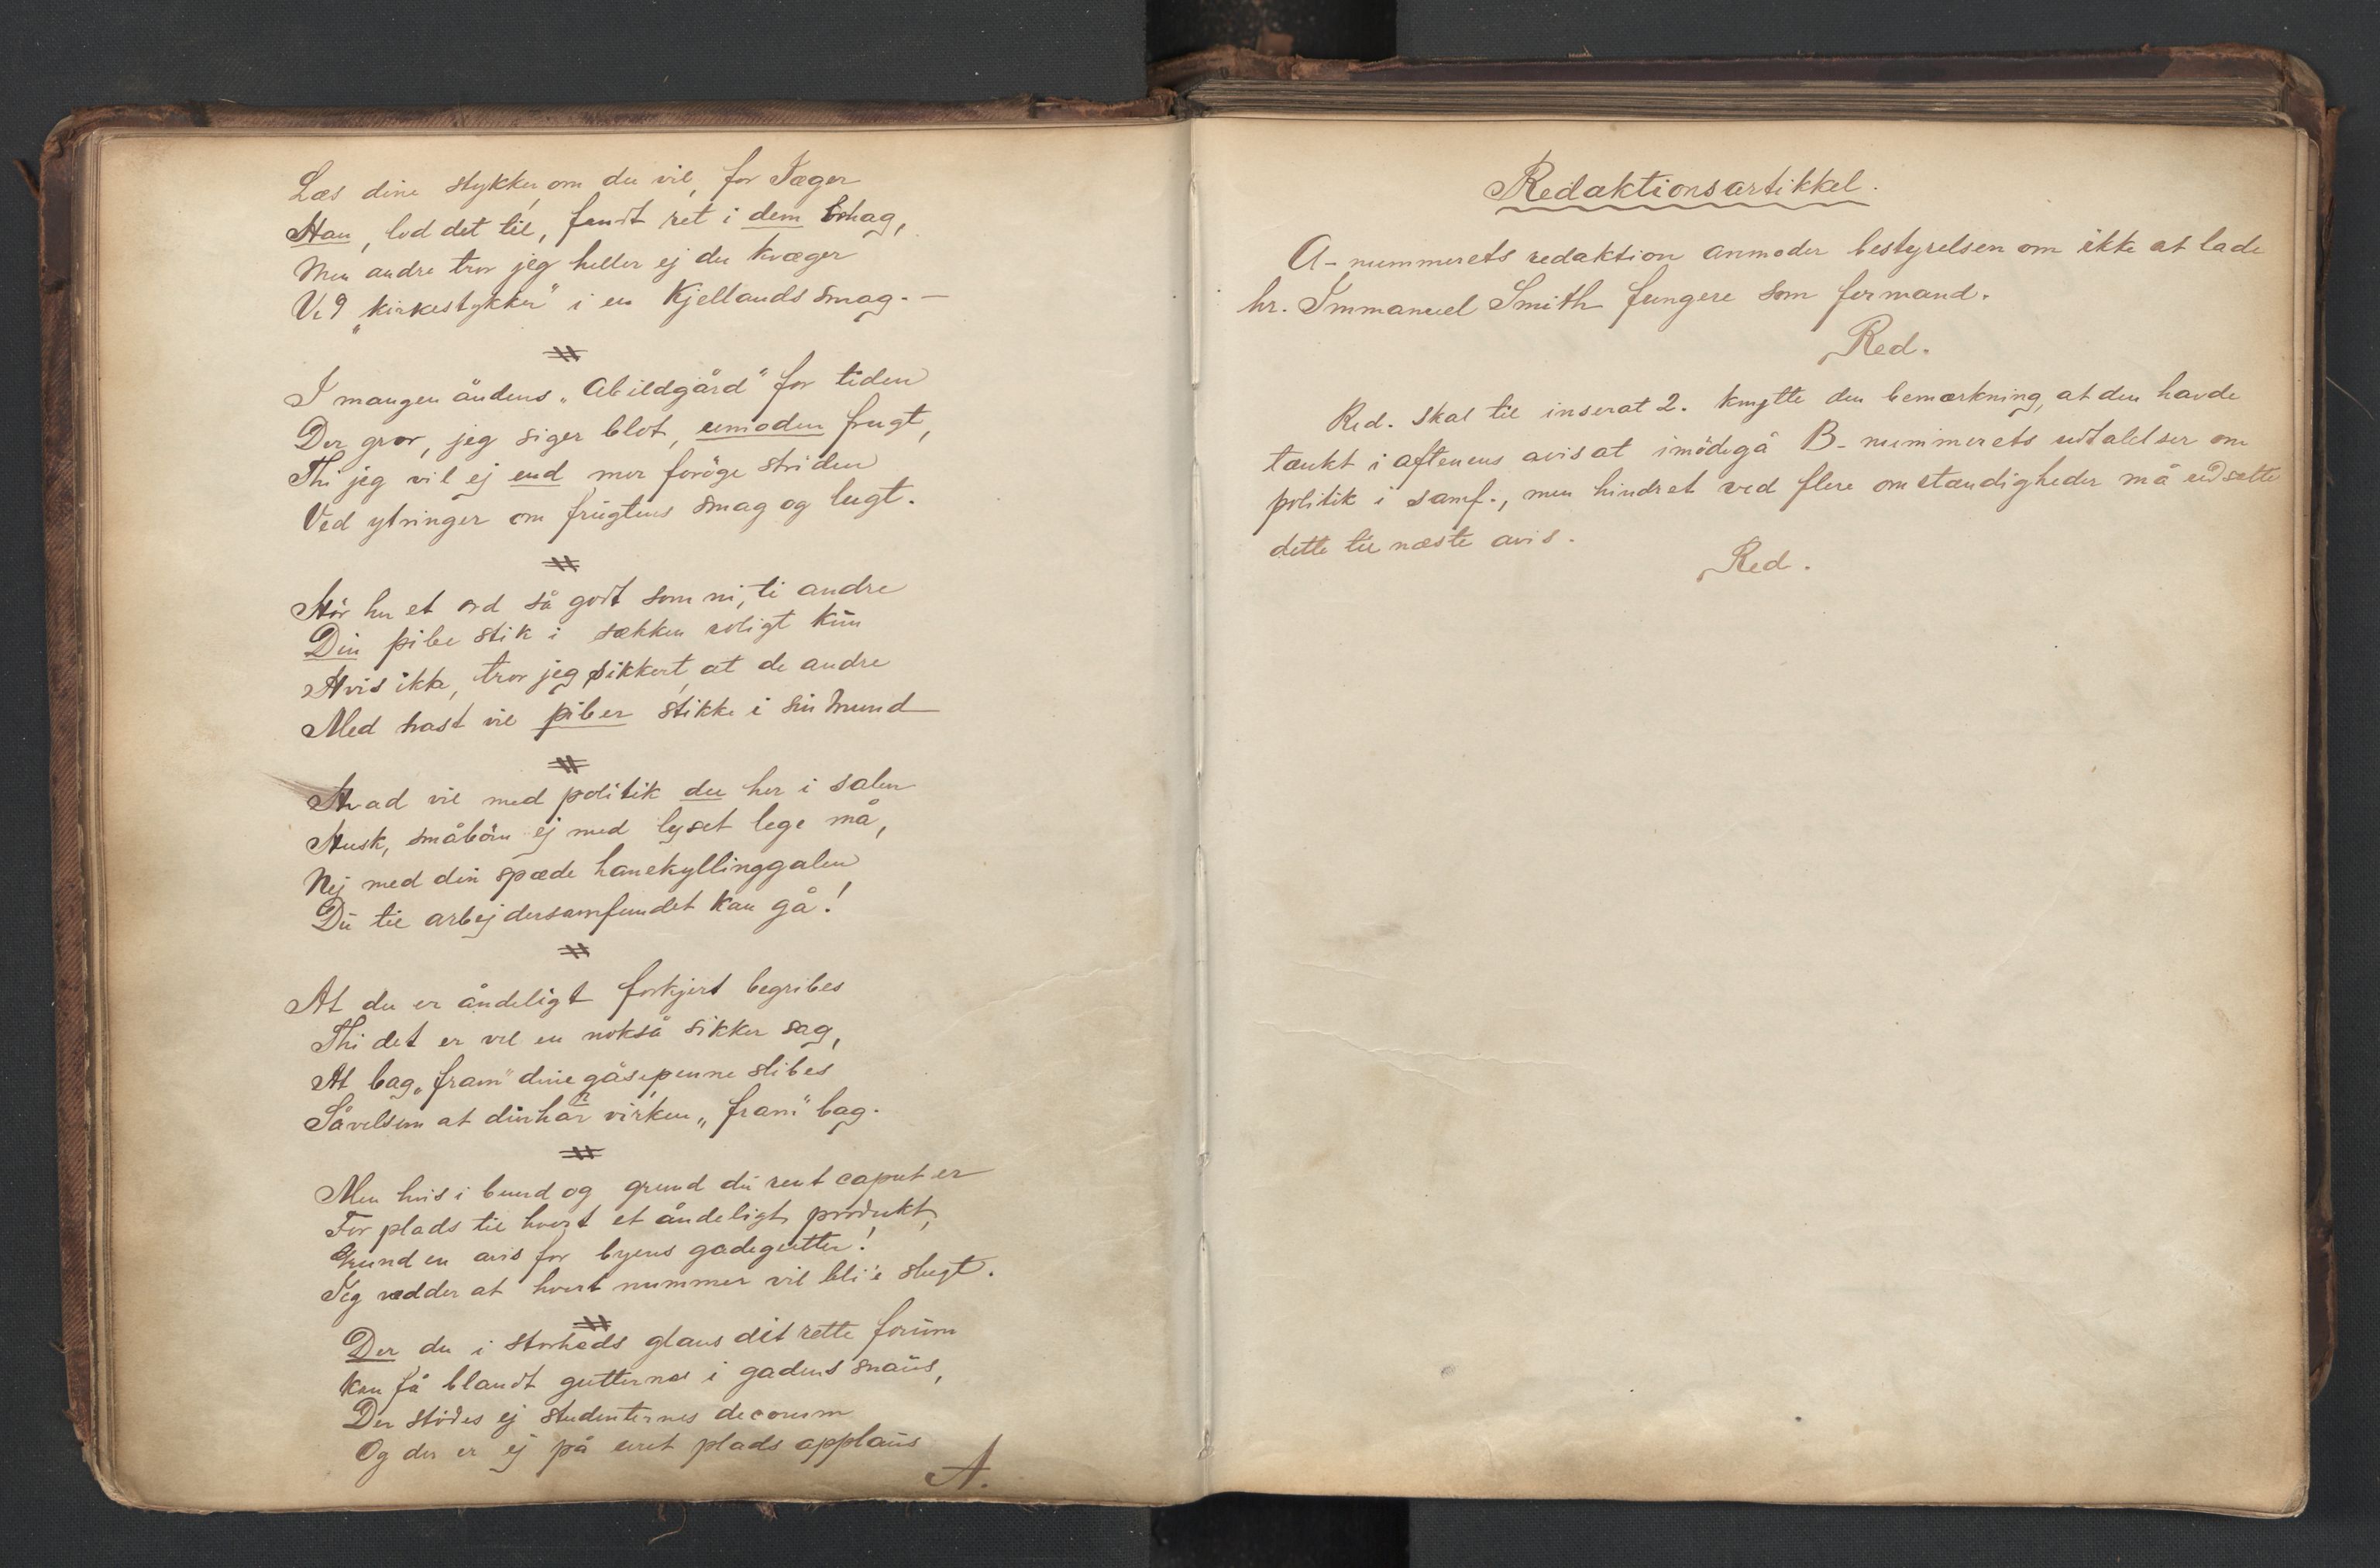 Læs dine stykker, om du vil, for Jæger
Han, lod det til, fandt ret i dem behag,
Men andre tror jeg heller ej du kvæger
Ved „kirkestykker" i en Kjellands smag. —
I mangen åndens „Abildgård" for tiden
Der gror, jeg siger blot, umoden frugt,
Thi jeg vil ej end mer foröge striden
Ved ytringer om frugtens smag og lugt.
Hör hu et ord så godt som ni, ti andre
Din pibe stik i sækken roligt kun
Hvis ikke, tror jeg sikkert, at de andre
Med hast vil piber stikke i sin mund
Hvad vil med politik du her i salen
Husk, småbörn ej med lyset lege må,
Nej med din spæde hanekyllinggalen
Du til arbejdersamfundet kan gå!
At du er åndeligt forkjert begribes
Thi det er vel en nokså sikker sag,
At bag „fram" dine gåsepenne slibes
Såvelsom at din här virken „fram" bag.
Men hvis i bund og grund du rent caput er
For plads til hvert et åndeligt produkt,
Grund en avis for byens gadegutter!
Jeg vædder at hvert nummer vil bli'e slugt.
Der du i storheds glans dit rette forum
Kan få blandt gutterne i gadens snaus,
Der stödes ej studenternes decorum
Og der er ej på uret plads applaus
A.
Redaktionsartikkel.
A-nummerets redaktion anmoder bestyrelsen om ikke at lade
hr. Immanuel Smith fungere som formand.
Red.
Red. skal til inserat 2. knytte den bemærkning, at den havde
tænkt i aftenens avis at imödegå B-nummerets udtalelser om
politik i samf., men hindret ved flere omstændigheder må udsætte
dette til næste avis.
Red.